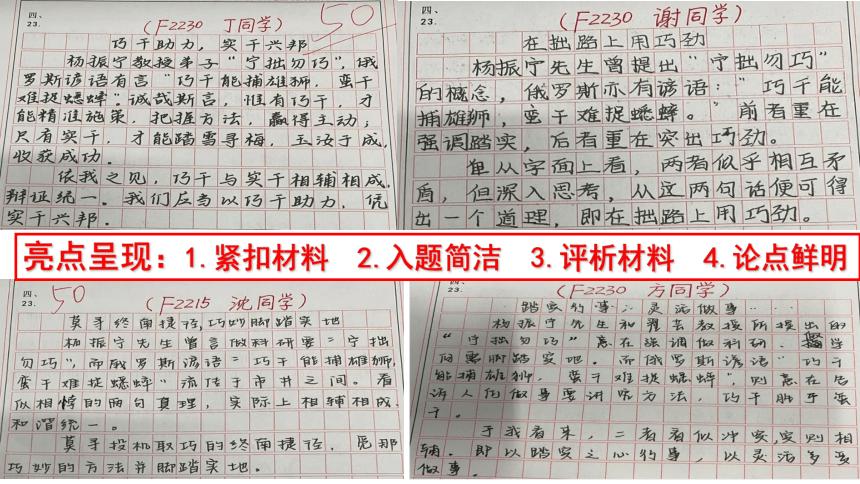 四、
23.
(F2230 丁同学)
50
巧干助力，实干兴邦
杨振宁教授弟子“宁拙勿巧”，俄
罗斯谚语有言“巧干能捕雄狮，蛮干
难捉蟋蟀”。诚哉斯言，惟有巧干，才
能精准施策，把握方法，赢得主动；
只有实干，才能踏雪寻梅，玉汝于成，
收获成功。
依我之见，巧干与实干相辅相成，
辩证统一。我们应当以巧干助力，凭
实干兴邦。
四、
23.
(F2230 谢同学)
在拙路上用巧劲
杨振宁先生曾提出“宁拙勿巧”
的概念，俄罗斯亦有谚语：“巧干能
捕雄狮，蛮干难捉蟋蟀。”前者重在
强调踏实，后者重在突出巧劲。
单从字面上看，两者似乎相互矛
盾，但深入思考，从这两句话便可得
出一个道理，即在拙路上用巧劲。
亮点呈现：1.紧扣材料 2.入题简洁 3.评析材料 4.论点鲜明
四、
23.
50
(F2215 沈同学)
莫寻终南捷径，巧妙脚踏实地
杨振宁先生曾言做科研要“宁拙
勿巧”，而俄罗斯谚语“巧干能捕雄狮，
蛮干难捉蟋蟀”流传于市井之间。看
似相悖的两句真理，实际上相辅相成，
和谐统一。
莫寻投机取巧的终南捷径，觅那
巧妙的方法并脚踏实地。
四、
23.
(F2230 方同学)
踏实行事 灵活做事
杨振宁先生和翟芸教授所提出的
“宁拙勿巧”意在强调做科研、学
问需脚踏实地。而俄罗斯谚语“巧干
能捕雄狮，蛮干难捉蟋蟀”，则意在告
诉人们做事要讲究方法，巧干胜于蛮
干。
于我看来，二者看似冲突，实则相
辅。即以踏实之心行事，以灵活多变
做事。